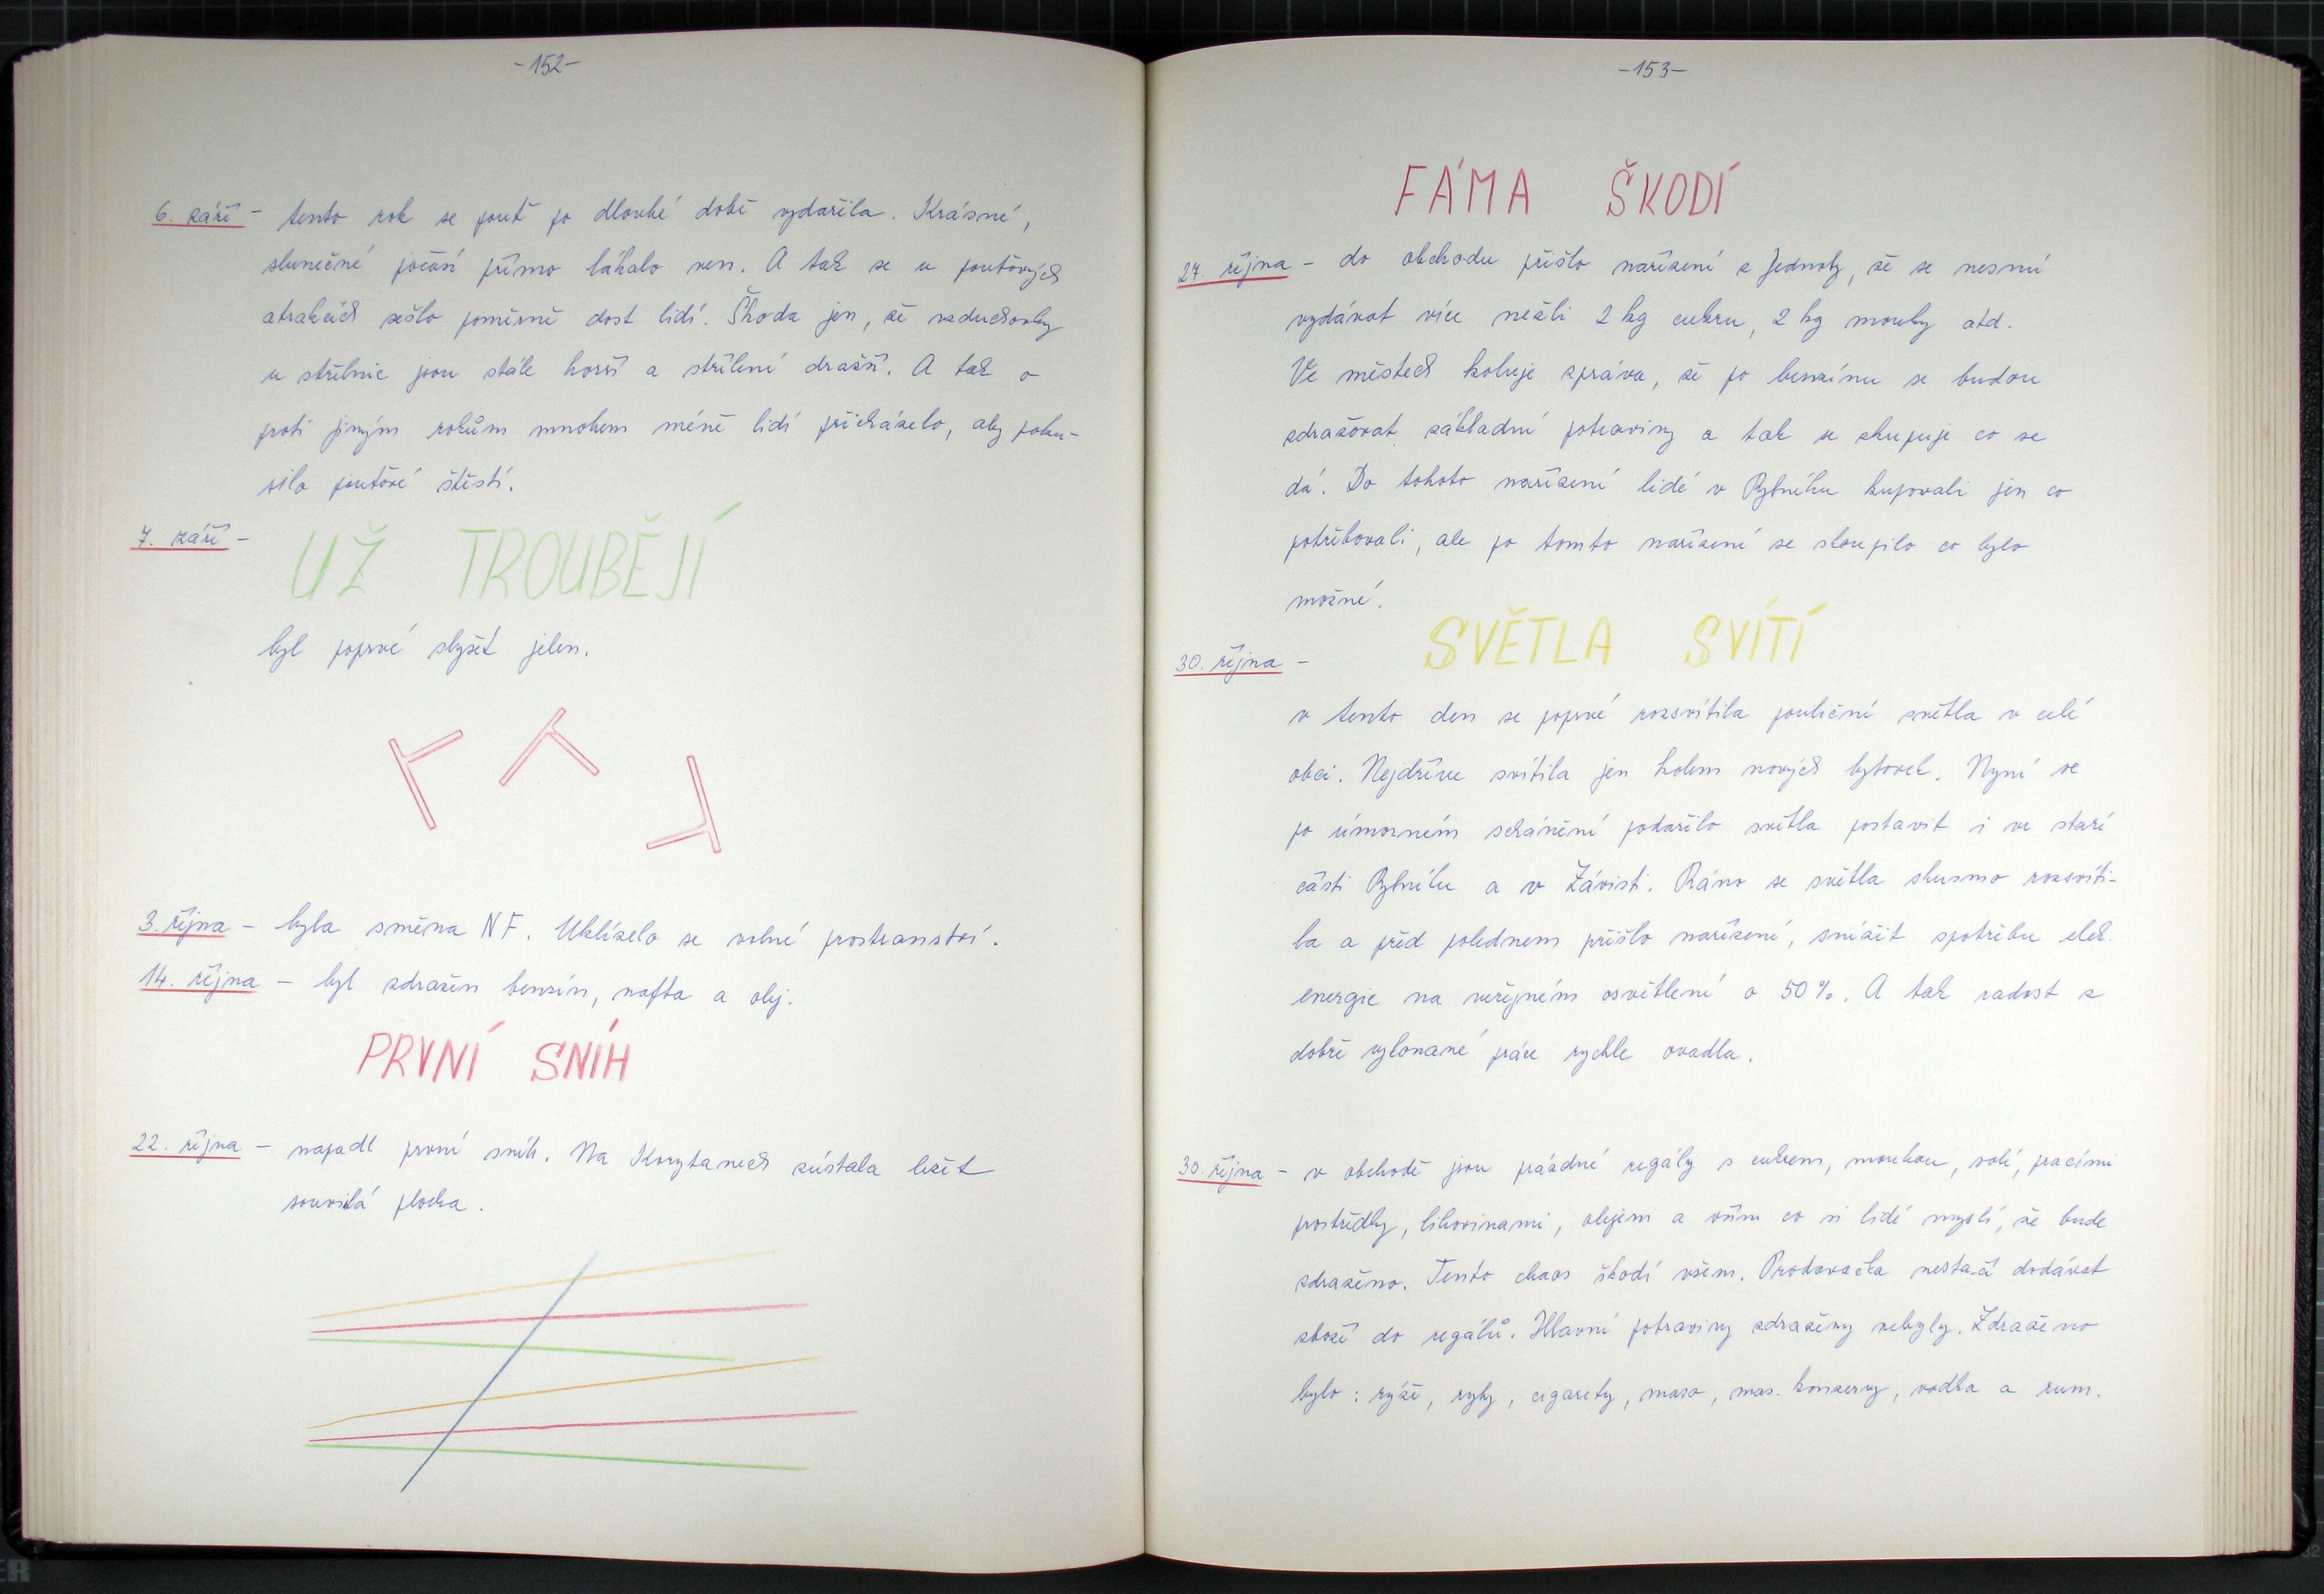 -152-
6. září - tento rok se pouť po dlouhé době vydařila. Krásné,
slunečné počasí přímo lákalo ven. A tak se u pouťových
atrakcích sešlo poměrně dost lidí. Škoda jen, že vzduchovky
u střelnic jsou stále horší a střílení dražší. A tak o
proti jiným rokům mnohem méně lidí přicházelo, aby poku-
silo pouťové štěstí.
7. září -
UŽ TROUBĚJÍ
byl poprvé slyšet jelen.
3. října - byla směna NF. Uklízelo se volné prostranství.
14. října - byl zdražen benzín, nafta a olej.
PRVNÍ SNÍH
22. října - napadl první sníh. Na Korytanech zůstala ležet
souvislá plocha.
-153-
FÁMA ŠKODÍ
27. října - do obchodu přišlo nařízení z Jednoty, že se nesmí
vydávat více nežli 2 kg cukru, 2 kg mouky atd.
Ve městech koluje zpráva, že po benzínu se budou
zdražovat základní potraviny a tak se skupuje co se
dá. Do tohoto nařízení lidé v Rybníku kupovali jen co
potřebovali, ale po tomto nařízení se skoupilo co bylo
možné.
SVĚTLA SVÍTÍ
30. října -
v tento den se poprvé rozsvítila pouliční světla v celé
obci. Nejdříve svítila jen kolem nových bytovek. Nyní se
po úmorném shánění podařilo světla postavit i ve staré
části Rybníku a v Závisti. Ráno se světla slusmo rozsvíti-
la a před polednem přišlo nařízení, snížit spotřebu elek.
energie na veřejném osvětlení o 50%. A tak radost z
dobře vykonané práce rychle ovadla.
30. října - v obchodě jsou prázdné regály s cukrem, moukou, solí, pracími
prostředky, lihovinami, olejem a vším co si lidé myslí, že bude
zdraženo. Tento chaos škodí všem. Prodavačka nestačí dodávat
zboží do regálů. Hlavní potraviny zdraženy nebyly. Zdraženo
bylo : rýže, ryby, cigarety, maso, mas. konzervy, vodka a rum.